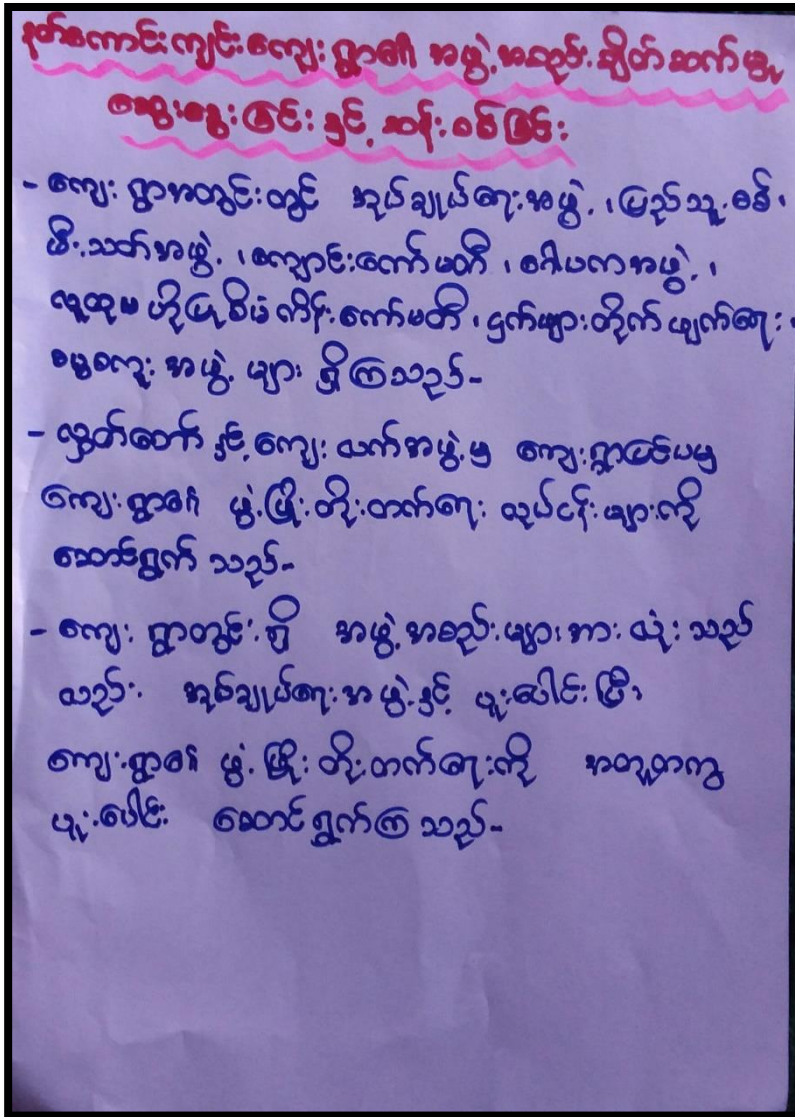 နတ်စကောင်းကျင်းကျေးရွာ၏ အဖွဲ့အစည်းချိတ်ဆက်မှု
ဆွေးနွေးခြင်းနှင့် ဆန်းစစ်ခြင်း
- ကျေးရွာအတွင်းတွင် အုပ်ချုပ်ရေးအဖွဲ့၊ ပြည်သူ့စစ်၊
မီးသတ်အဖွဲ့၊ ကျောင်းကော်မတီ၊ ဂေါပကအဖွဲ့၊
လူထုဗဟိုပြုစီမံကိန်းကော်မတီ၊ ငှက်ဖျားတိုက်ဖျက်ရေး
အဖွဲ့များ ရှိကြသည်-
- လွှတ်တော်နှင့် ကျေးလက်အဖွဲ့မှ ကျေးရွာပြင်ပမှ
ကျေးရွာ၏ ဖွံ့ဖြိုးတိုးတက်ရေး လုပ်ငန်းများကို
ဆောင်ရွက်သည်-
- ကျေးရွာတွင်းရှိ အဖွဲ့အစည်းများအားလုံးသည်
လည်း အုပ်ချုပ်ရေးအဖွဲ့နှင့် ပူးပေါင်းပြီး
ကျေးရွာ၏ ဖွံ့ဖြိုးတိုးတက်ရေးကို အတူတကွ
ပူးပေါင်း ဆောင်ရွက်ကြသည်-